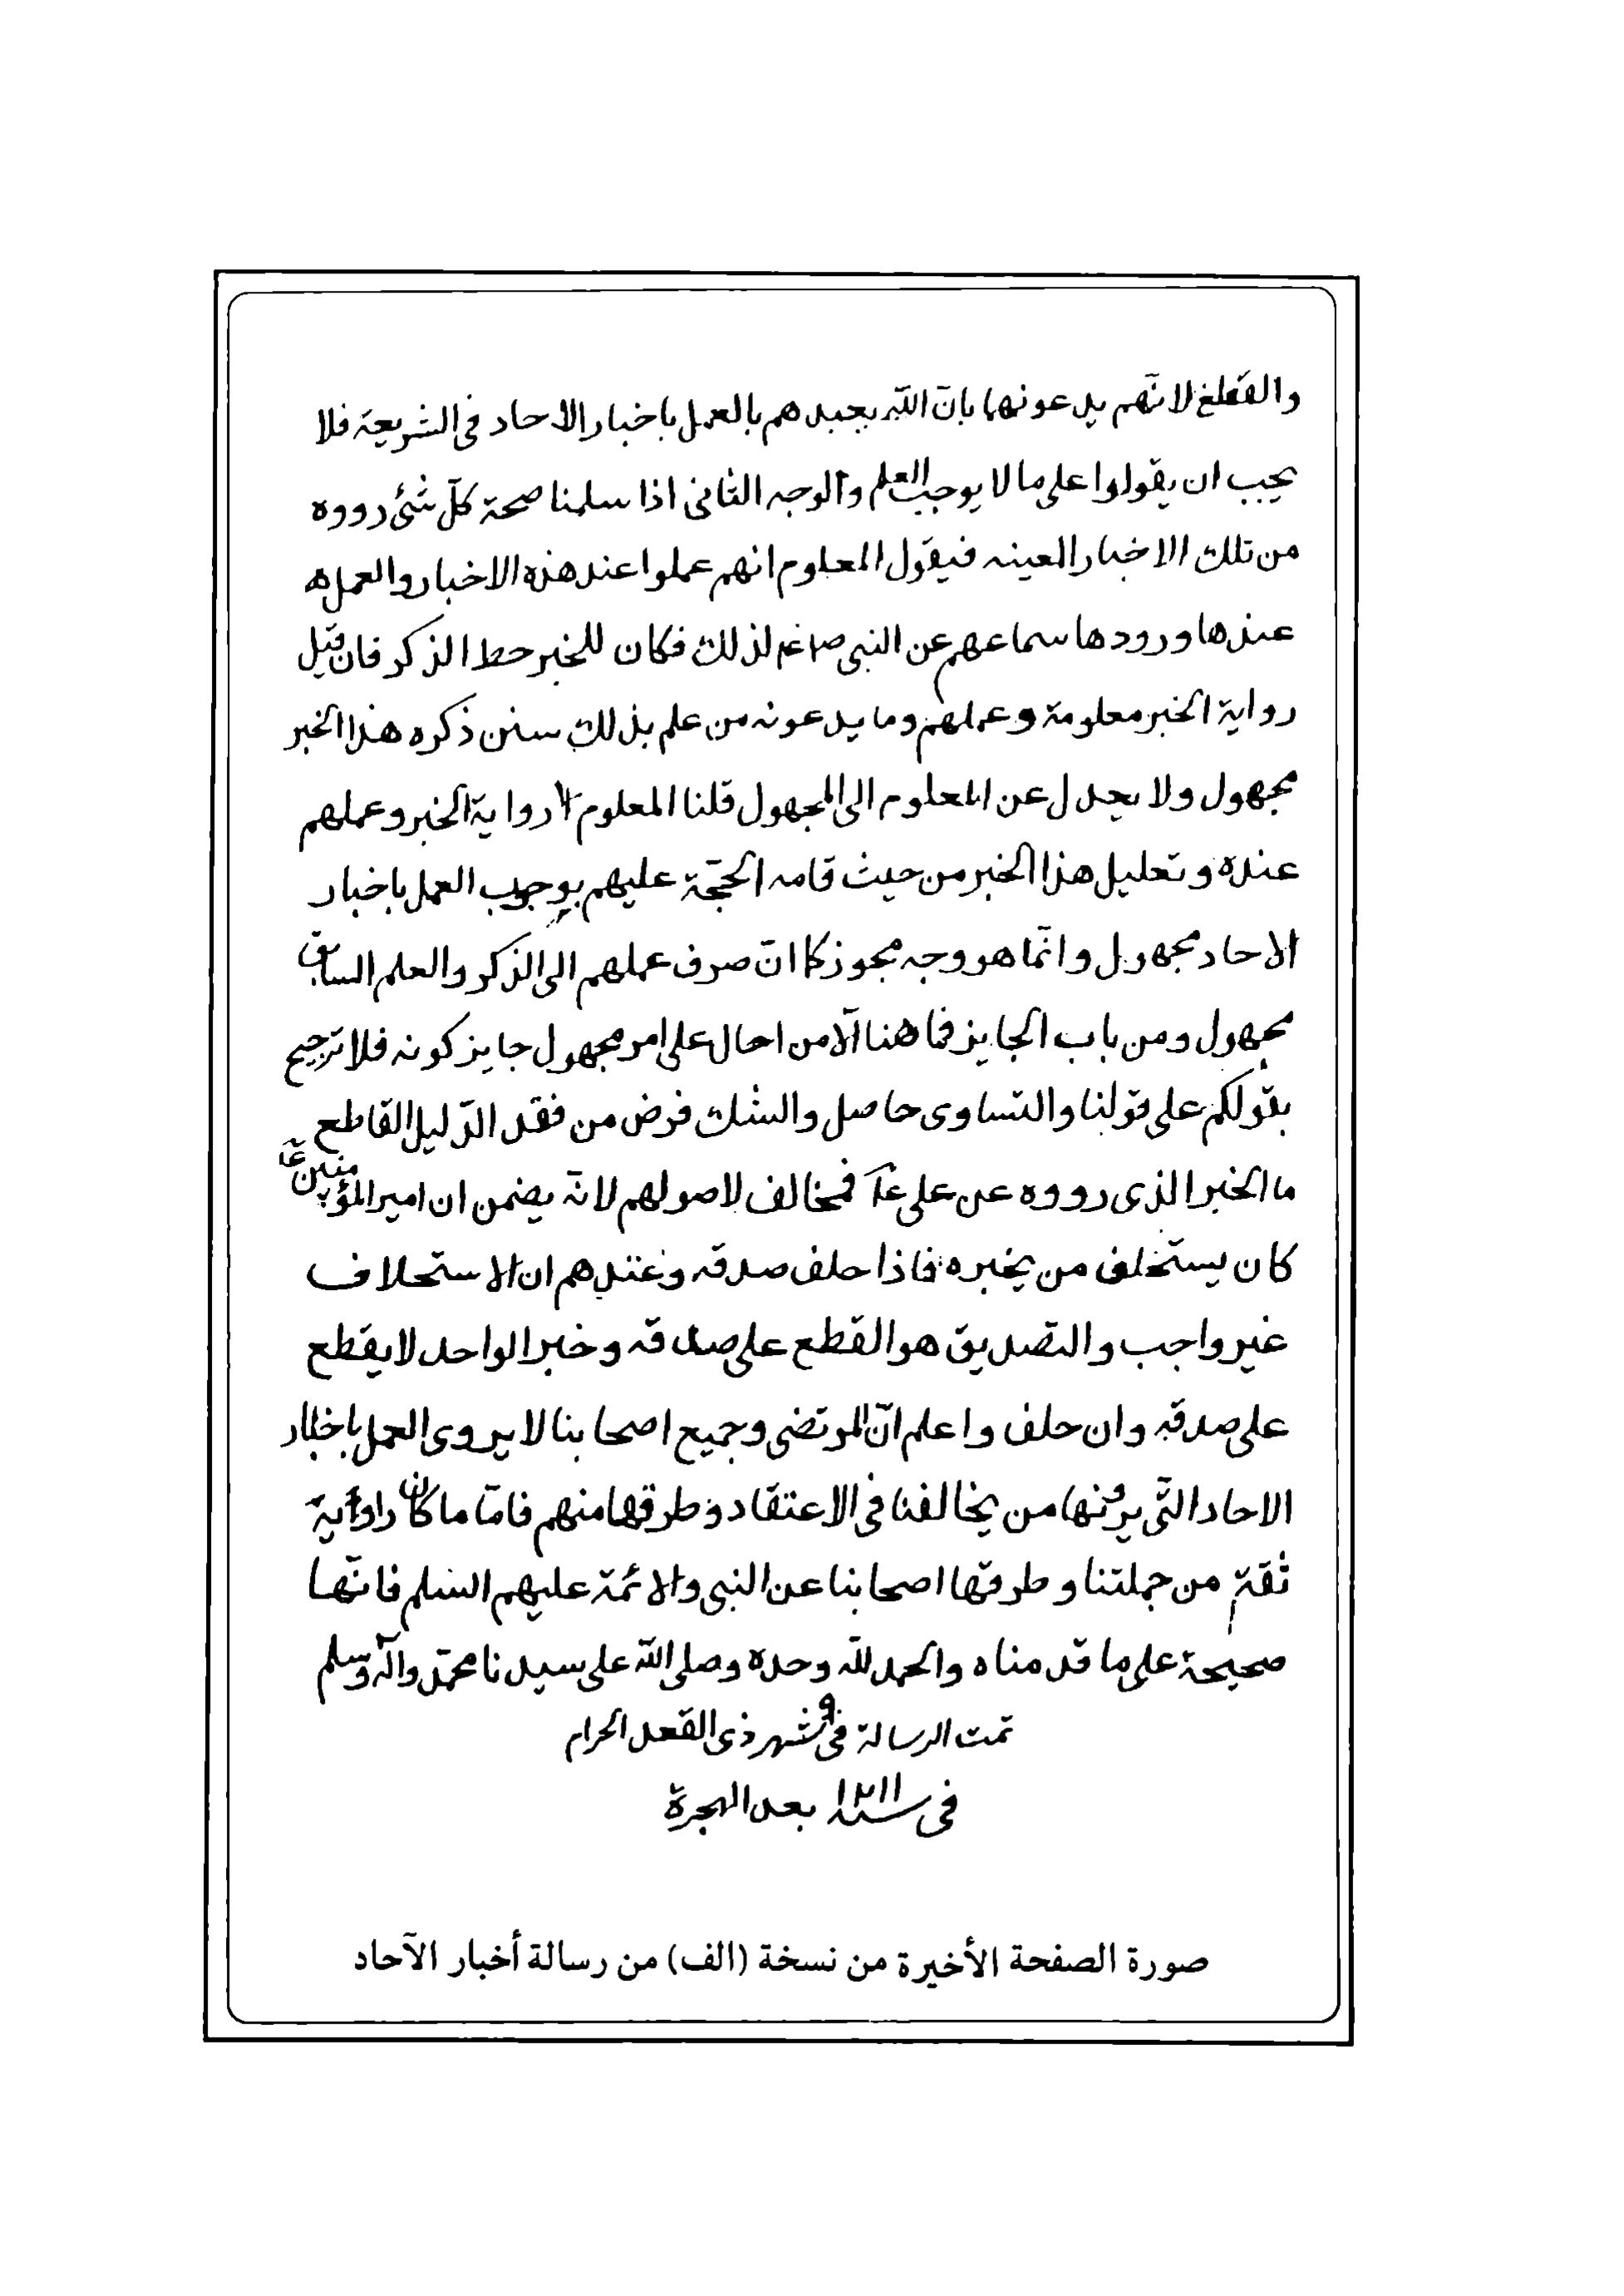 والقطع لانّهم يدعونها بانّ اللّه يعبدهم بالعمل باخبار الاحاد فى الشريعة فلا
يجب ان يقولوا على ما لا يوجب العلم والوجه الثانى اذا سلمنا صحة كلّ شئ رووه
من تلك الاخبار المعينه فيقول المعلوم انهم عملوا عند هذه الاخبار والعمل
عندها ورودها سماعهم عن النبى لذلك فكان للخبر حظ الذكر فان قيل
رواية الخبر معلومة وعملهم وما يدعونه من علم بذلك سنن ذكره هذا الخبر
مجهول ولا يعدل عن المعلوم الى المجهول قلنا المعلوم رواية الخبر وعملهم
عنده وتعليل هذا الخبر من حيث قامه الحجّة عليهم بوجوب العمل باخبار
الاحاد مجهول وانّما هو وجه مجوز كما انّ صرف عملهم الى الذكر والعلم السابق
مجهول ومن باب الجايز فما هنا الّا من احال على امر مجهول جايز كونه فلا ترجيح
بقولكم على قولنا والتساوى حاصل والشك فرض من فقد الدّليل القاطع
ما الخبر الذى رووه عن على عٓا فمخالف لاصولهم لانّه يضمن ان امير المؤمنين عٓا
كان يستحلف من يخبره فاذا حلف صدقه وعندهم ان الاستحلاف
غير واجب والتصديق هو القطع على صدقه وخبر الواحد لا يقطع
على صدقه وان حلف واعلم انّ المرتضى وجميع اصحابنا لا يروى العمل باخبار
الاحاد التّى يرونها من يخالفنا فى الاعتقاد وطرقها منهم فامّا ما كان راوية
ثقة من جملتنا وطرقها اصحابنا عن النبى والائمّة عليهم السّلم فانّها
صحيحة على ما قدمناه والحمد للّه وحده وصلى اللّه على سيدنا محمّد وآله وسلم
تمت الرسالة فى ٩ شهر ذى القعد الحرام
فى سنة ١٢١١ بعد الهجرة
صورة الصفحة الأخيرة من نسخة (الف) من رسالة أخبار الآحاد